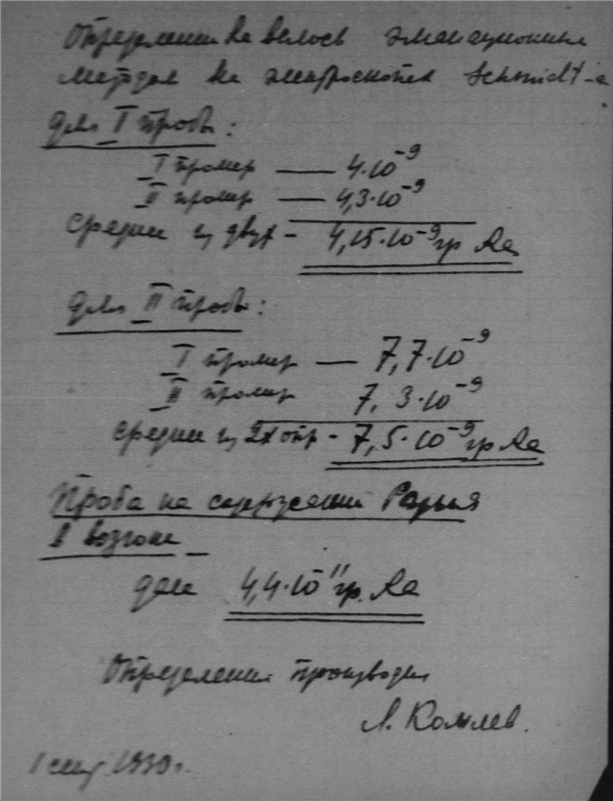 Определение велось эманационным
методом на электроскопе Schmidt-а
для I пробы:
I промер — 4·10⁻⁹
II промер — 4,3·10⁻⁹
Средн. из двух - 4,15·10⁻⁹ гр Ra
для II пробы:
I промер — 7,7·10⁻⁹
II промер 7,3·10⁻⁹
средн. из 2х опр - 7,5·10⁻⁹ гр Ra
Проба на содержание Радия
в возгоне
дала 4,4·10⁻¹¹ гр. Ra
Определения производил
Л. Комлев.
1 1930 г.